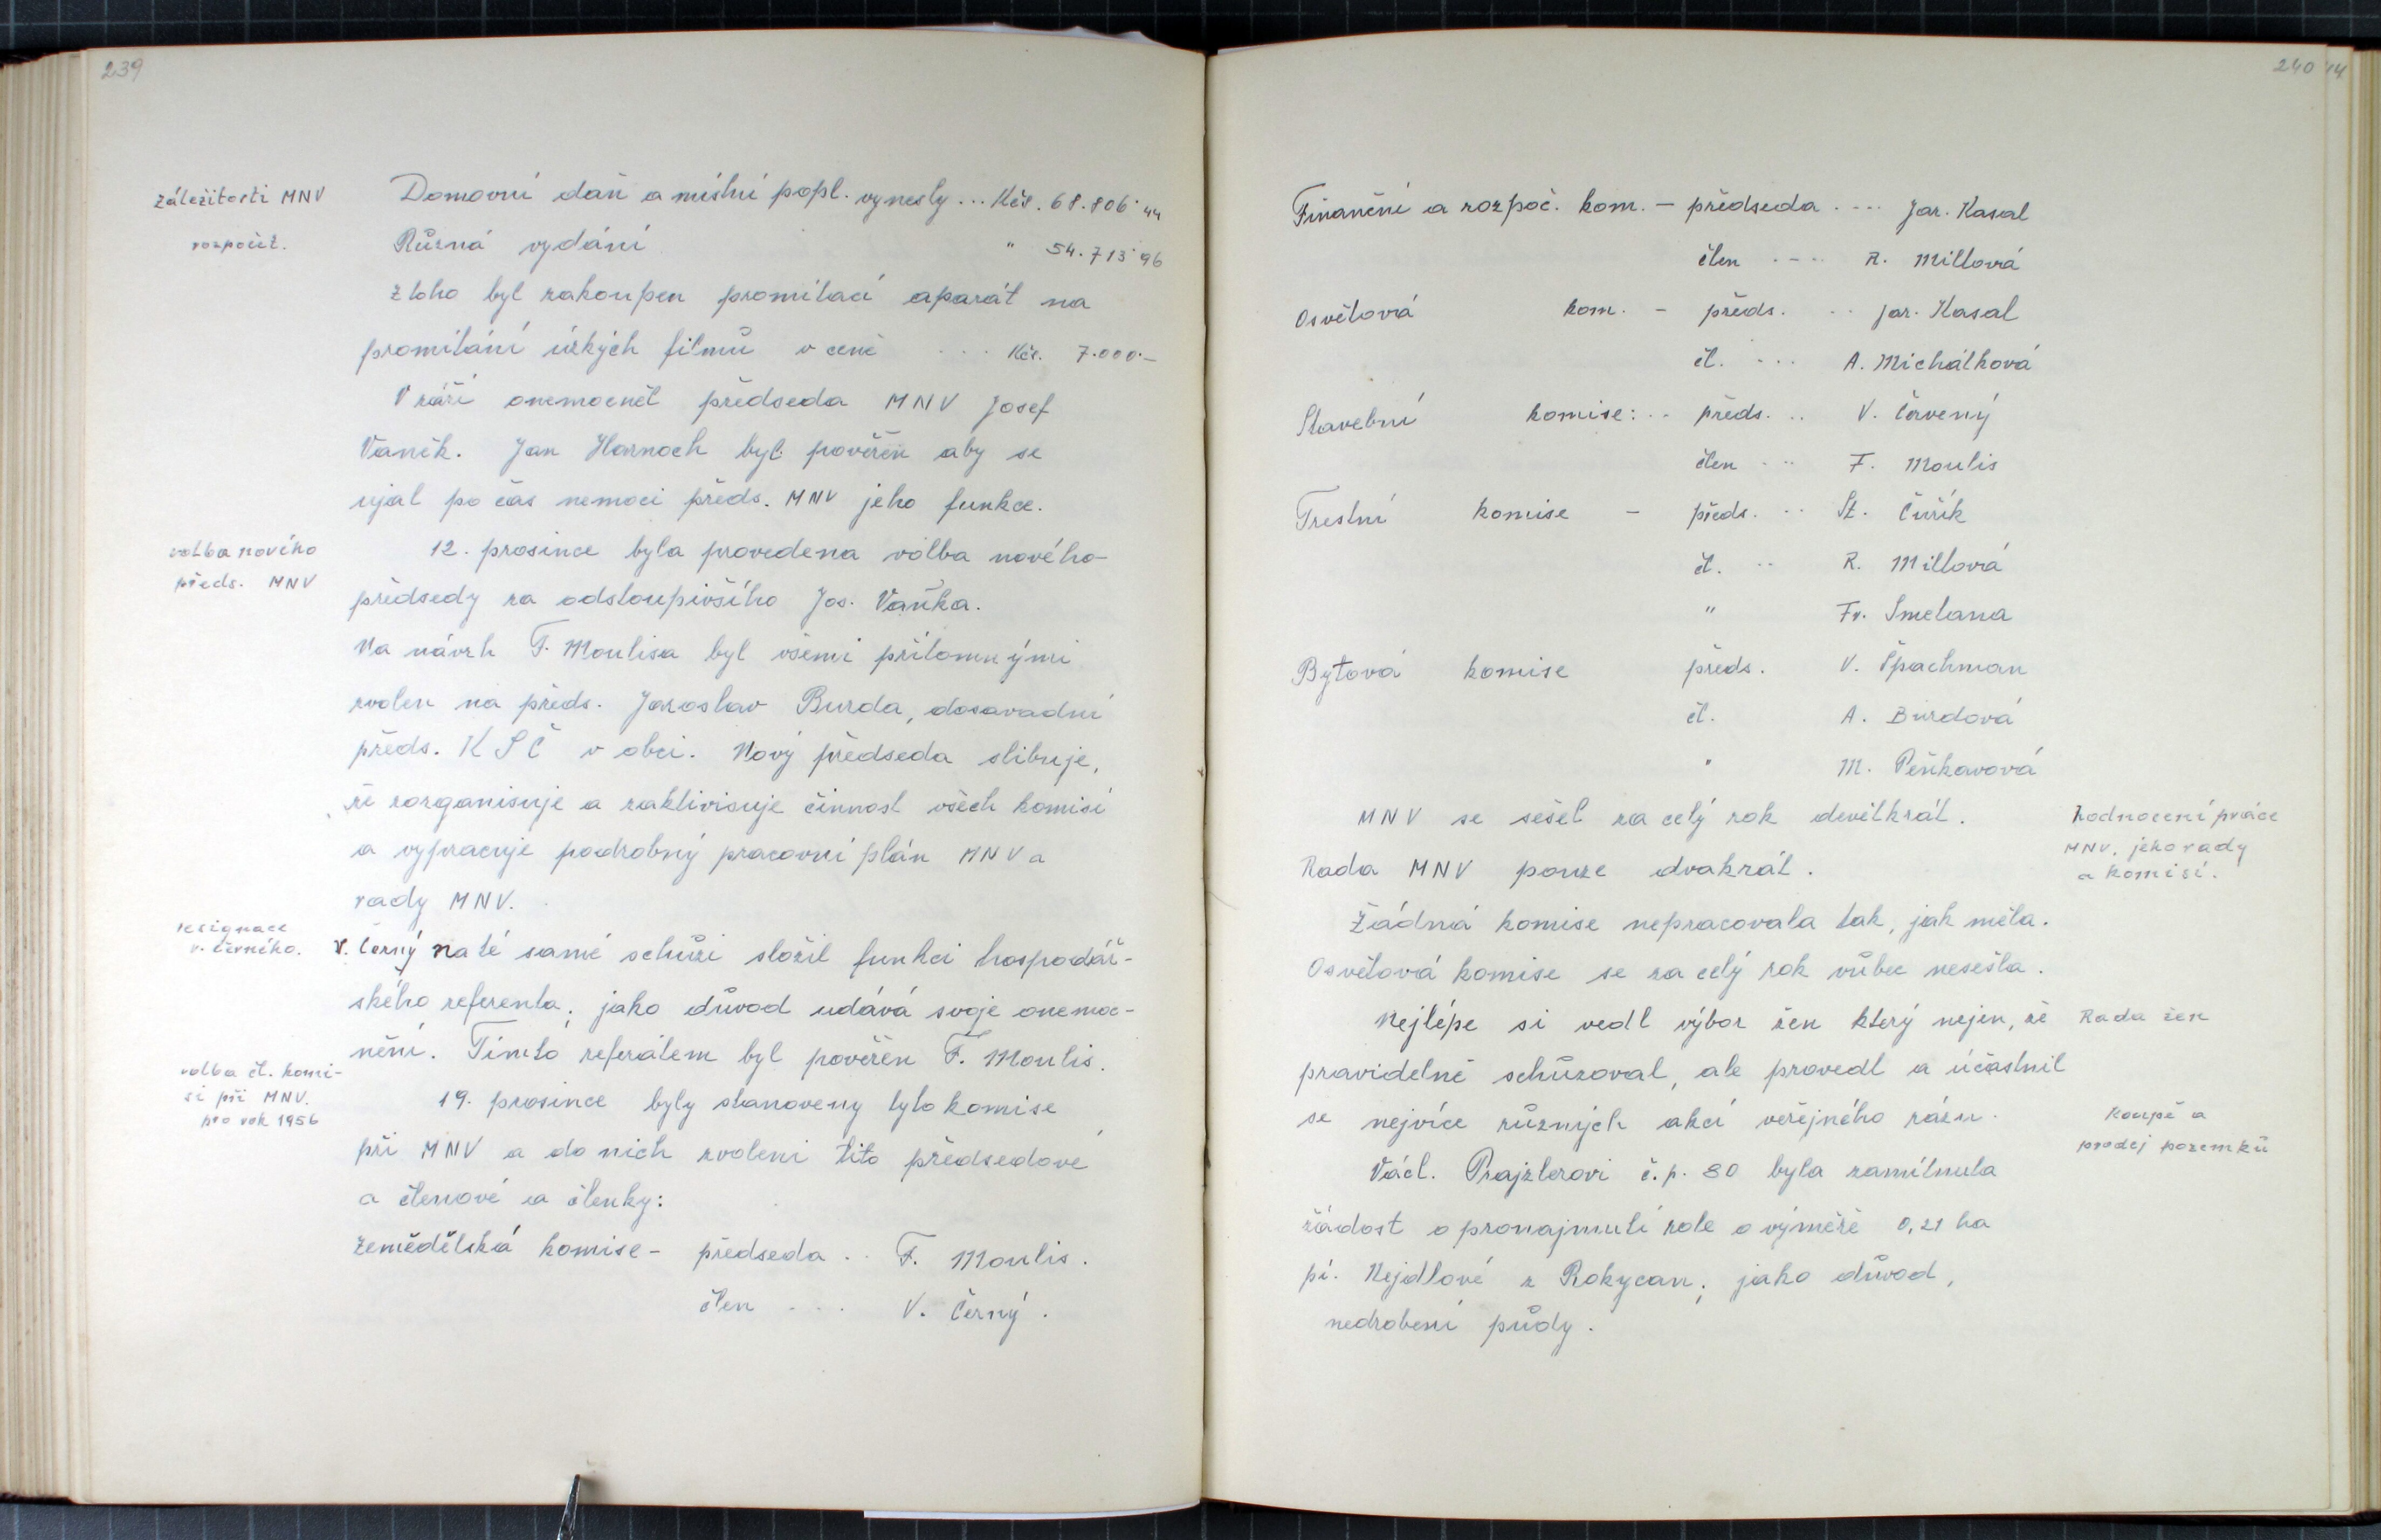 239
záležitosti MNV
rozpočet.
Domovní daň a místní popl. vynesly ... Kčs. 68.806˙44
Různá vydání " 54.713˙96
z toho byl zakoupen promítací aparát na
promítání úzkých filmů v ceně ... Kčs. 7.000.–
V září onemocněl předseda MNV Josef
Vaněk. Jan Harnoch byl pověřen aby se
ujal po čas nemoci předs. MNV jeho funkce.
volba nového
předs. MNV
12. prosince byla provedena volba nového
předsedy za odstoupivšího Jos. Vaňka.
Na návrh F. Moulisa byl všemi přítomnými
zvolen na předs. Jaroslav Burda, dosavadní
předs. KSČ v obci. Nový předseda slibuje,
že zorganisuje a zaktivisuje činnost všech komisí
a vypracuje podrobný pracovní plán MNV a
rady MNV.
resignace
V. Černého.
V. Černý na té samé schůzi složil funkci hospodář-
ského referenta; jako důvod udává svoje onemoc-
nění. Tímto referátem byl pověřen F. Moulis.
volba čl. komi-
sí při MNV.
pro rok 1956
19. prosince byly stanoveny tyto komise
při MNV a do nich zvoleni tito předsedové
a členové a členky:
zemědělská komise - předseda .. F. Moulis.
člen .... V. Černý.
240 14
Finanční a rozpoč. kom. – předseda .... Jar. Kasal
člen .... R. Millová
Osvětová kom. – předs. .. Jar. Kasal
čl. ... A. Michálková
Stavební komise: .. předs. .. V. Červený
člen ... F. Moulis
Trestní komise – předs. .. St. Čuřík
čl. .. R. Millová
" Fr. Smetana
Bytová komise předs. V. Špachman
čl. A. Burdová
" M. Peškavová
MNV se sešel za celý rok devětkrát.
Rada MNV pouze dvakrát.
hodnocení práce
MNV, jeho rady
a komisí.
Žádná komise nepracovala tak, jak měla.
Osvětová komise se za celý rok vůbec nesešla.
Nejlépe si vedl výbor žen který nejen, že
Rada žen
pravidelně schůzoval, ale provedl a účastnil
se nejvíce různých akcí veřejného rázu.
Koupě a
prodej pozemků
Václ. Prajzlerovi č.p. 80 byla zamítnuta
žádost o pronajmutí role o výměře 0,21 ha
pí. Nejdlové z Rokycan; jako důvod,
nedrobení půdy.